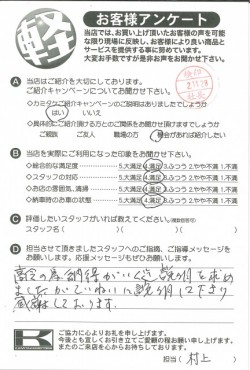 軽
お客様アンケート
当店では、お買い上げ頂いたお客様の声を可能
な限り現場に反映し、お客様により良い商品と
サービスを提供する事に努めています。
大変お手数ですが是非お声をお聞かせ下さい。
A 当店はご紹介を大切にしております。
ご紹介キャンペーンについてお聞かせ下さい。
はい いいえ
ご親戚 ご友人 職場の方 機会があれば紹介したい
B 当店を実際にご利用になった印象をお聞かせ下さい。
・総合的な満足度 5.大満足 4.満足 3.ふつう 2.やや不満 1.不満
・スタッフの対応 5.大満足 4.満足 3.ふつう 2.やや不満 1.不満
・お店の雰囲気、清掃 5.大満足 4.満足 3.ふつう 2.やや不満 1.不満
・納車時のお車の状態 5.大満足 4.満足 3.ふつう 2.やや不満 1.不満
C 評価したいスタッフがいれば教えてください。
スタッフ名( )( )( )
D 担当させて頂きましたスタッフへのご指摘、ご指導メッセージを
お願いします。応援メッセージもぜひお願いします。
納得がいく迄説明を求め
ましたがていねいに説明して下さり
感謝しております。
K
ご協力に心よりお礼を申し上げます。
今後とも宜しくお引き立てご愛顧の程お願い申し上げます。
またのご来店を心からお待ちしております。
担当( 村上 )